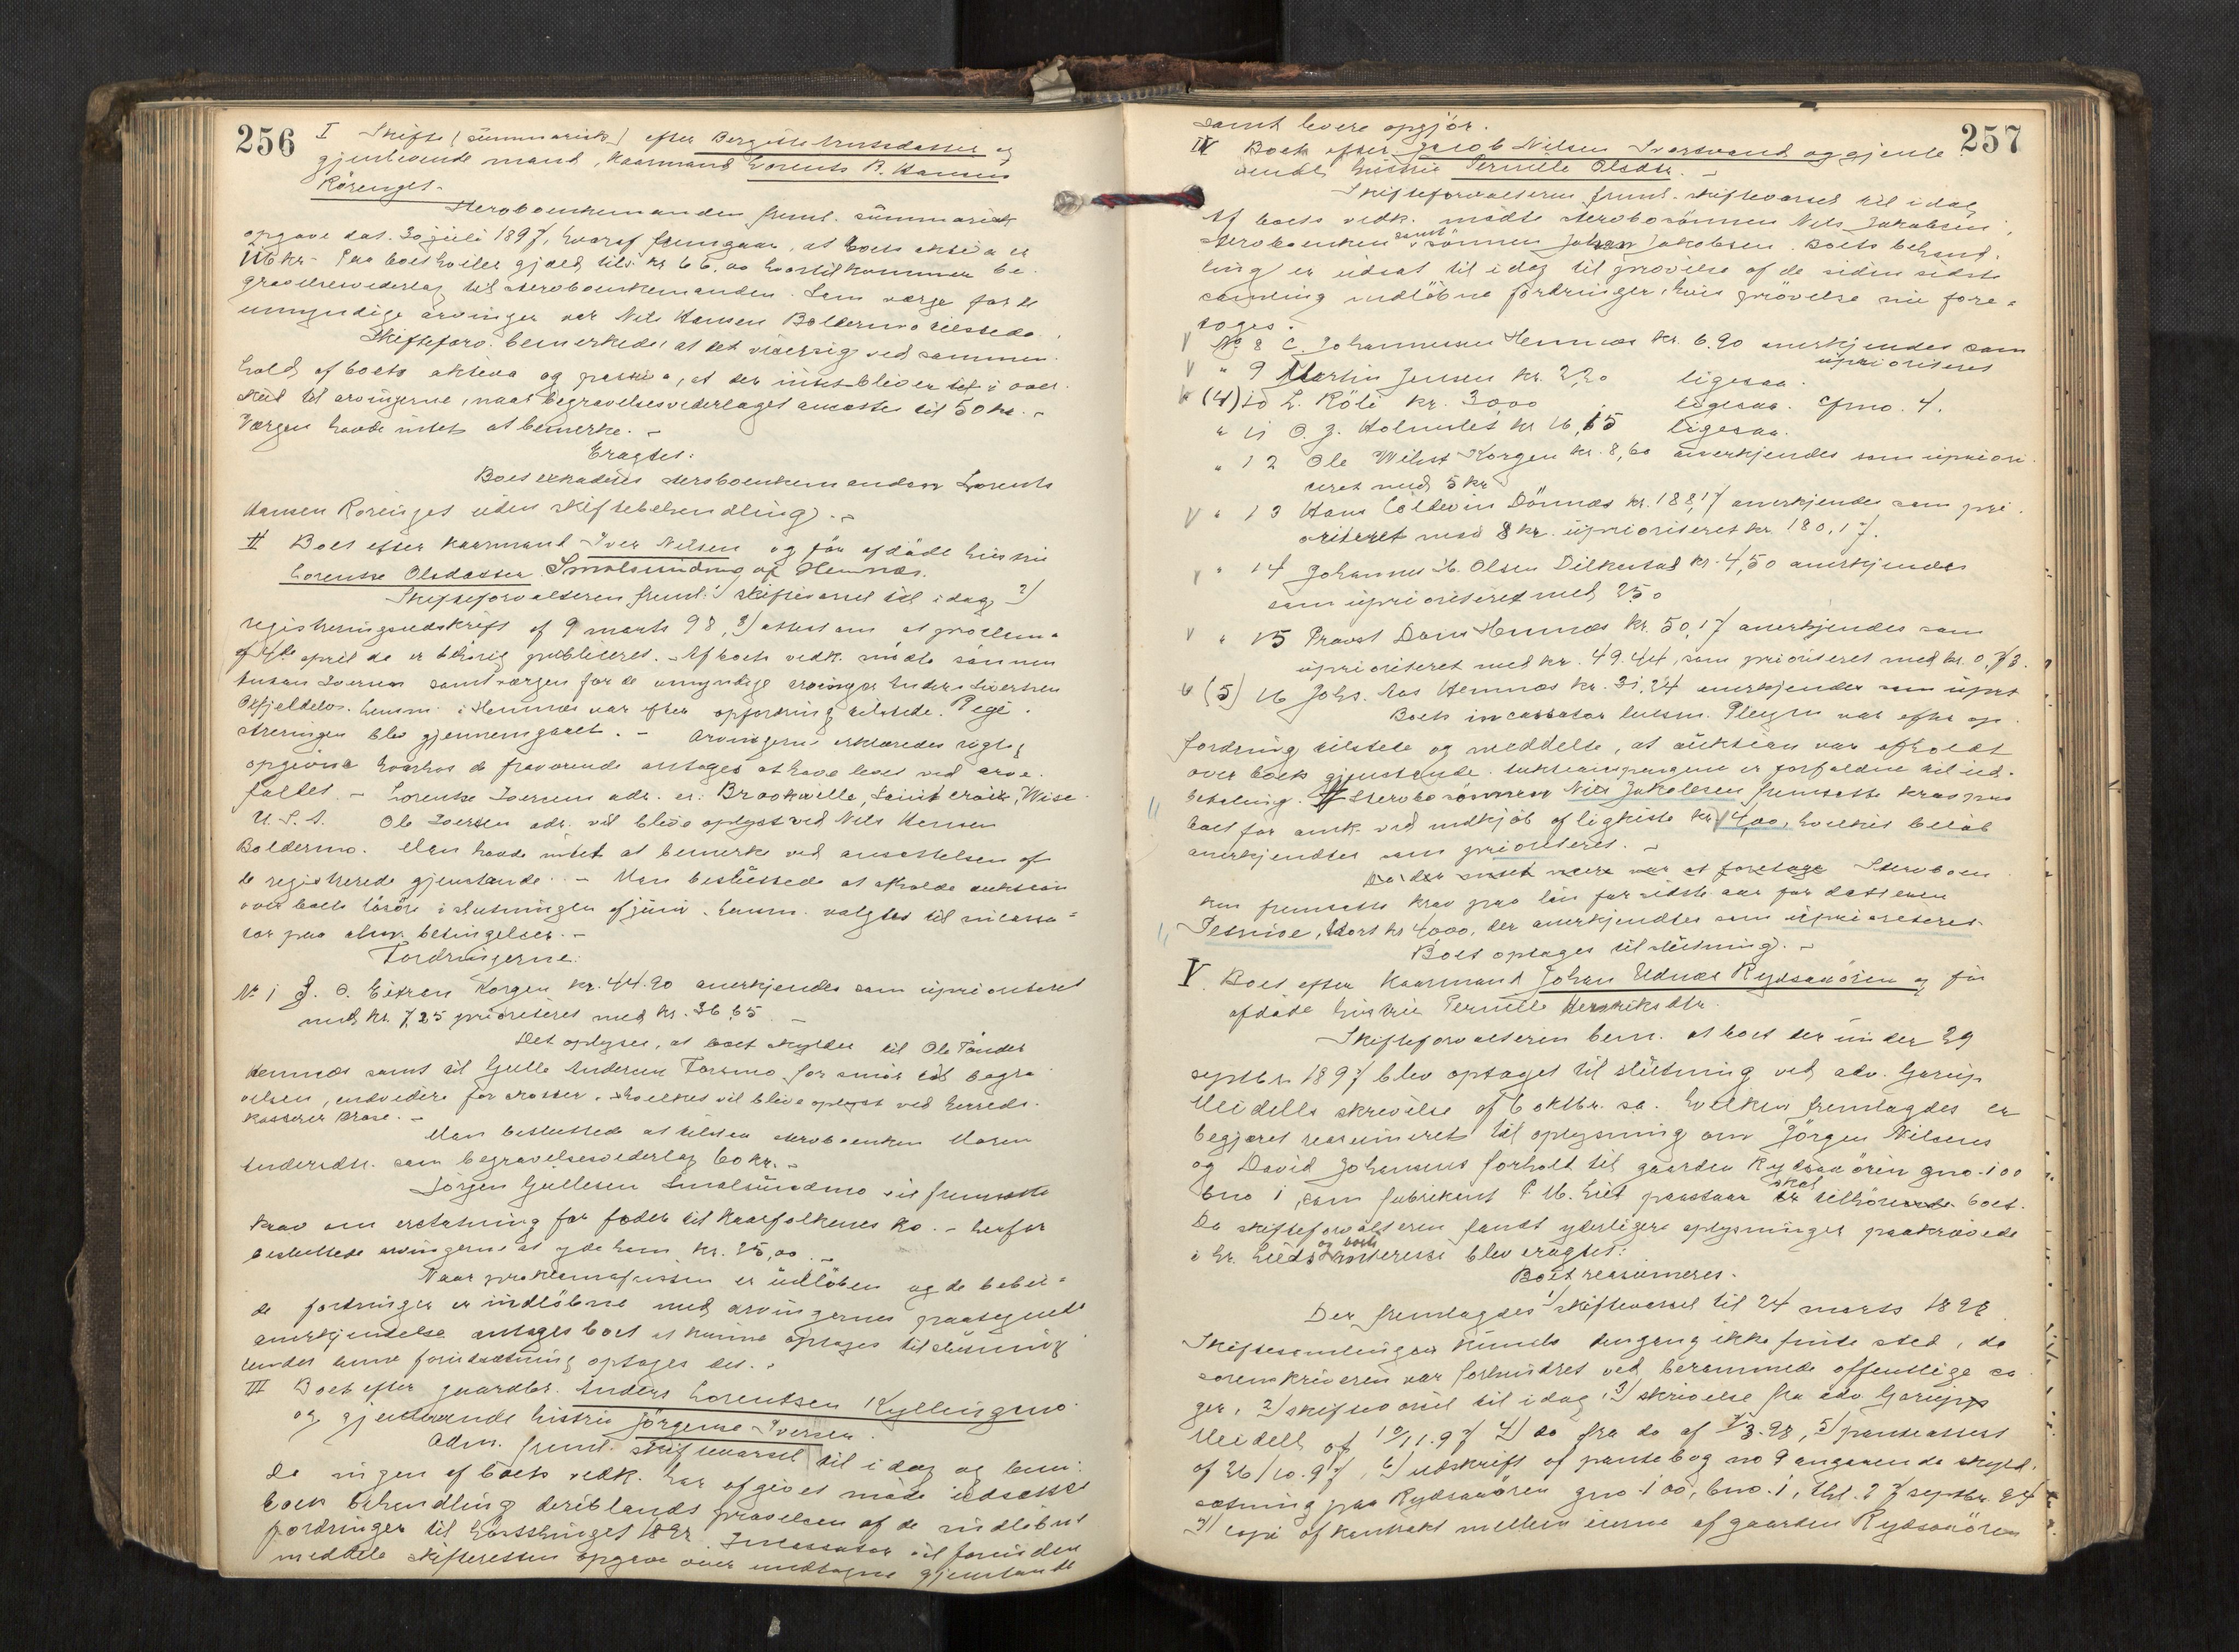 256
I Skifte (summarisk) efter Bergitte Knutsdatter og
gjenlevende mand, Kaarmand Lorents B. Hansen
Röringet.
Sterboenkemanden freml. summarisk
opgave dat. 30 juli 1897, hvoraf fremgaar, at boets aktiva er
116 kr. Paa boet hviler gjæld tils. kr 66,00 hvortil kommer be-
gravelsesvederlag til sterboenkemanden. Som værge for de
umyndige arvinger var Nils Hansen Boldermo tilstede.
Skifteforv. bemerkede, at det viser sig ved sammen-
hold af boets aktiva og passiva, at der intet bliver til i over-
skud til arvingerne, naar begravelsesvederlaget ansættes til 50 kr. -
Værgen havde intet at bemerke. -
Eragtet:
Boet extraderes sterboenkemanden Lorents
Hansen Röringet uden skiftebehandling. -
II Boet efter kaarmand Iver Nilsen og før afdöde hustru
Lorentse Olsdatter Smalsundmo af Hemnæs.
Skifteforvalteren freml. 1) skiftevarsel til idag 2)
registreringsudskrift af 9 marts 98, 3) attest om at proclama
af 4de april da er behörig publiceret. - Af boets vedk. mödte sönnen
Johan Iversen samt værgen for de umyndige arvinger Anders Sivertsen
Oxfjeldelv. Lensm. i Hemnæs var efter opfordring tilstede. Regi-
streringen blev gjennemgaaet. - Arvingerne erklæredes rigtig
opgivne hvorhos de fraværende antages at have levet ved arve-
faldet. - Lorentse Iversens adr. er: Brookville, Saint Croix, Wisc.
U. S. A. Ole Iversen adr. vil blive oplyst ved Nils Hansen
Boldermo. Man havde intet at bemerke ved ansættelsen af
de registrerede gjenstande. - Man besluttede at afholde auktion
over boets lösöre i slutningen af juni. Lensm. valgtes til incassa-
tor paa alm. betingelser. -
Fordringerne:
No 1 J. O. Eitran Korgen kr. 44.90 anerkjendes som uprioriteret
med kr. 7,25 prioriteret med kr. 36,65 -
Det oplyses, at boet skylder til Ole Tönder
Hemnæs samt til Gulle Andersen Forsmo for smör til begra-
velsen, endvidere for drosser, hvilket vil blive oplyst ved herreds-
kasserer Brase. -
Man besluttede at tilstaa sterboenken Maren
Andersdtr. som begravelsesvederlag 60 kr. -
Jörgen Gullesen Smalsundmo vil fremsætte
krav om erstatning for foder til kaarfolkenes ko. - herfor
besluttede arvingerne at yde ham kr. 25,00. -
Naar proklamafristen er udlöben og de bebu-
de fordringer er indlöbne med arvingernes paategnede
anerkjendelse antages boet at kunne optages til slutning
under denne forudsætning optages det. -
III Boet efter gaardbr. Anders Lorentsen Kyllingmo
og gjenlevende hustru Jörgine Iversen.
Adm. freml. skiftevarsel til idag og bem.
da ingen af boets vedk. har afgivet möde udsættes
boets behandling deriblandt prövelsen af de indlöbne
fordringer til høstthinget 1898. Incassator vil forinden
meddele skifteretten opgave over undtagne gjenstande
257
samt levere opgjör.
IV Boet efter Jacob Nilsen Svartvand og gjenle-
vende hustru Pernille Olsdtr. -
Skifteforvalteren freml. skiftevarsel til idag
Af boets vedk. mödte sterbosönnen Nils Jakobsen,
sterboenken samt sönnen Johan Jakobsen. Boets behand-
ling er udsat til idag til prövelse af de siden sidste
samling indlöbne fordringer, hvis prövelse nu fore-
toges:
V No 8 C. Johannessen Hemnæs kr. 6.90 anerkjendes som
uprioriteret
V " 9 Martin Jensen kr. 2,20 ligesaa.
(4) 10 L. Röli kr. 30,00 ligesaa. cfr no. 4.
" 11 O. J. Holmslet kr 16,15 ligesaa.
" 12 Ole Wilist Korgen kr. 8,60 anerkjendes som upriori-
teret med 5 kr
V " 13 Hans Coldevin Dönnæs kr. 188,17 anerkjendes som pri-
oriteret med 8 kr. uprioriteret kr. 180,17.
V " 14 Johannes H. Olsen Dilkestad kr. 4,50 anerkjendes
som uprioriteret med 250
V " 15 Provst Dons Hemnæs kr. 50,17 anerkjendes som
uprioriteret med kr. 49.44, som prioriteret med kr. 0,73.
V (5) 16 Johs. Aas Hemnæs kr. 31,24 anerkjendes som uprt
Boets incassator lensm. Pleym var efter op-
fordring tilstede og meddelte, at auktion var afholdt
over boets gjenstande. Auktionspengene er forfaldne til ud-
betaling. Sterbosönnen Nils Jakobsen fremsatte krav paa
boet for omk. ved indkjöb af ligkiste kr 14,00, hvilket belöb
anerkjendtes som prioriteret. -
Da der intet mere var at foretage Sterboen-
ken fremsatte krav paa lön for sidste aar for datteren
Petrine, stort kr 40,00, der anerkjendtes som uprioriteret.
Boet optages til slutning. -
V Boet efter Kaarmand Johan Udnæs Rydsaaören og för
afdöde hustru Pernille Henriksdtr.
Skifteforvalteren bem. at boet der under 29
septbr 1897 blev optaget til slutning ved adv. Garup
Meidells skrivelse af 6 oktbr. s.a. hvilken fremlagdes er
begjæret reassumeret til oplysning om Jörgen Nilsens
og David Johansens forhold til gaarden Rydsaaören gno. 100
bno 1, som fabrikant P. M. Lied paastaar skal tilhöre boet.
Da skifteforvalteren fandt yderligere oplysninger paakrævede
i hr. Lieds og boets interesse blev eragtet:
Boet reassumeres.
Der fremlagdes 1) skiftevarsel til 24 marts 1898
Skiftesamlingen kunde dengang ikke finde sted, da
sorenskriveren var forhindret ved berammede offentlige sa-
ger, 2) skiftevarsel til idag, 3) skrivelse fra adv Garup
Meidell af 10/11.97 4) do fra do af 1/3.98, 5) panteattest
af 26/10.97, 6) udskrift af pantebog no 9 angaaende skyld-
sætning paa Rydsaaören gno. 100, bno. 1, thl. 27 septbr. 94
7) copi af kontrakt mellem eierne af gaarden Rydsaaören